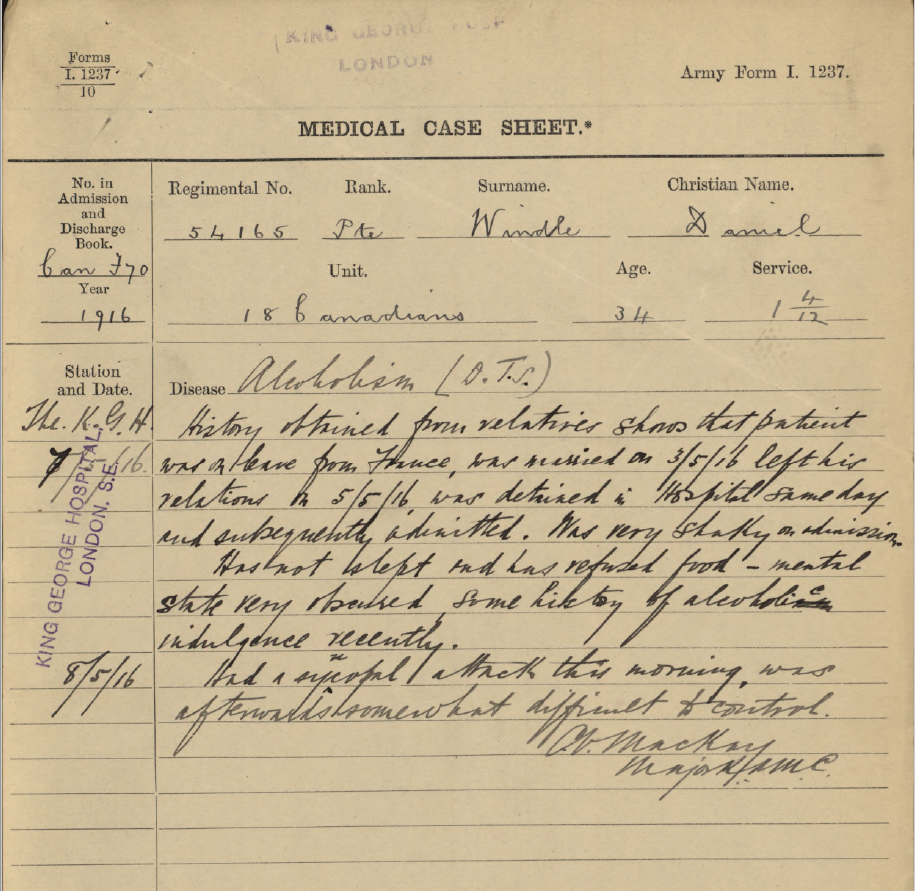 KING GEORGE HOSP
LONDON
Forms
I. 1237
10
Army Form I. 1237.
MEDICAL CASE SHEET.*
No. in
Admission
and
Discharge
Book.
Can F70
Year
1916
Regimental No. Rank. Surname. Christian Name.
54165 Pte Windle Daniel
Unit. Age. Service.
18 Canadians 34 1 4/12
Station
and Date.
Disease Alcoholism (D.T.s.)
The. K. G. H.
7/5/16.
KING GEORGE HOSPITAL,
LONDON, S.E.
History obtained from relatives shows that patient
was on leave from France, was married on 3/5/16 left his
relations on 5/5/16, was detained in Hospital same day
and subsequently admitted. Was very shaky on admission.
Has not slept and has refused food – mental
state very obscured, some history of alcoholic
indulgence recently.
8/5/16
Had a syncopal attack this morning, was
afterwards somewhat difficult to control.
MacKay
Major RAMC.